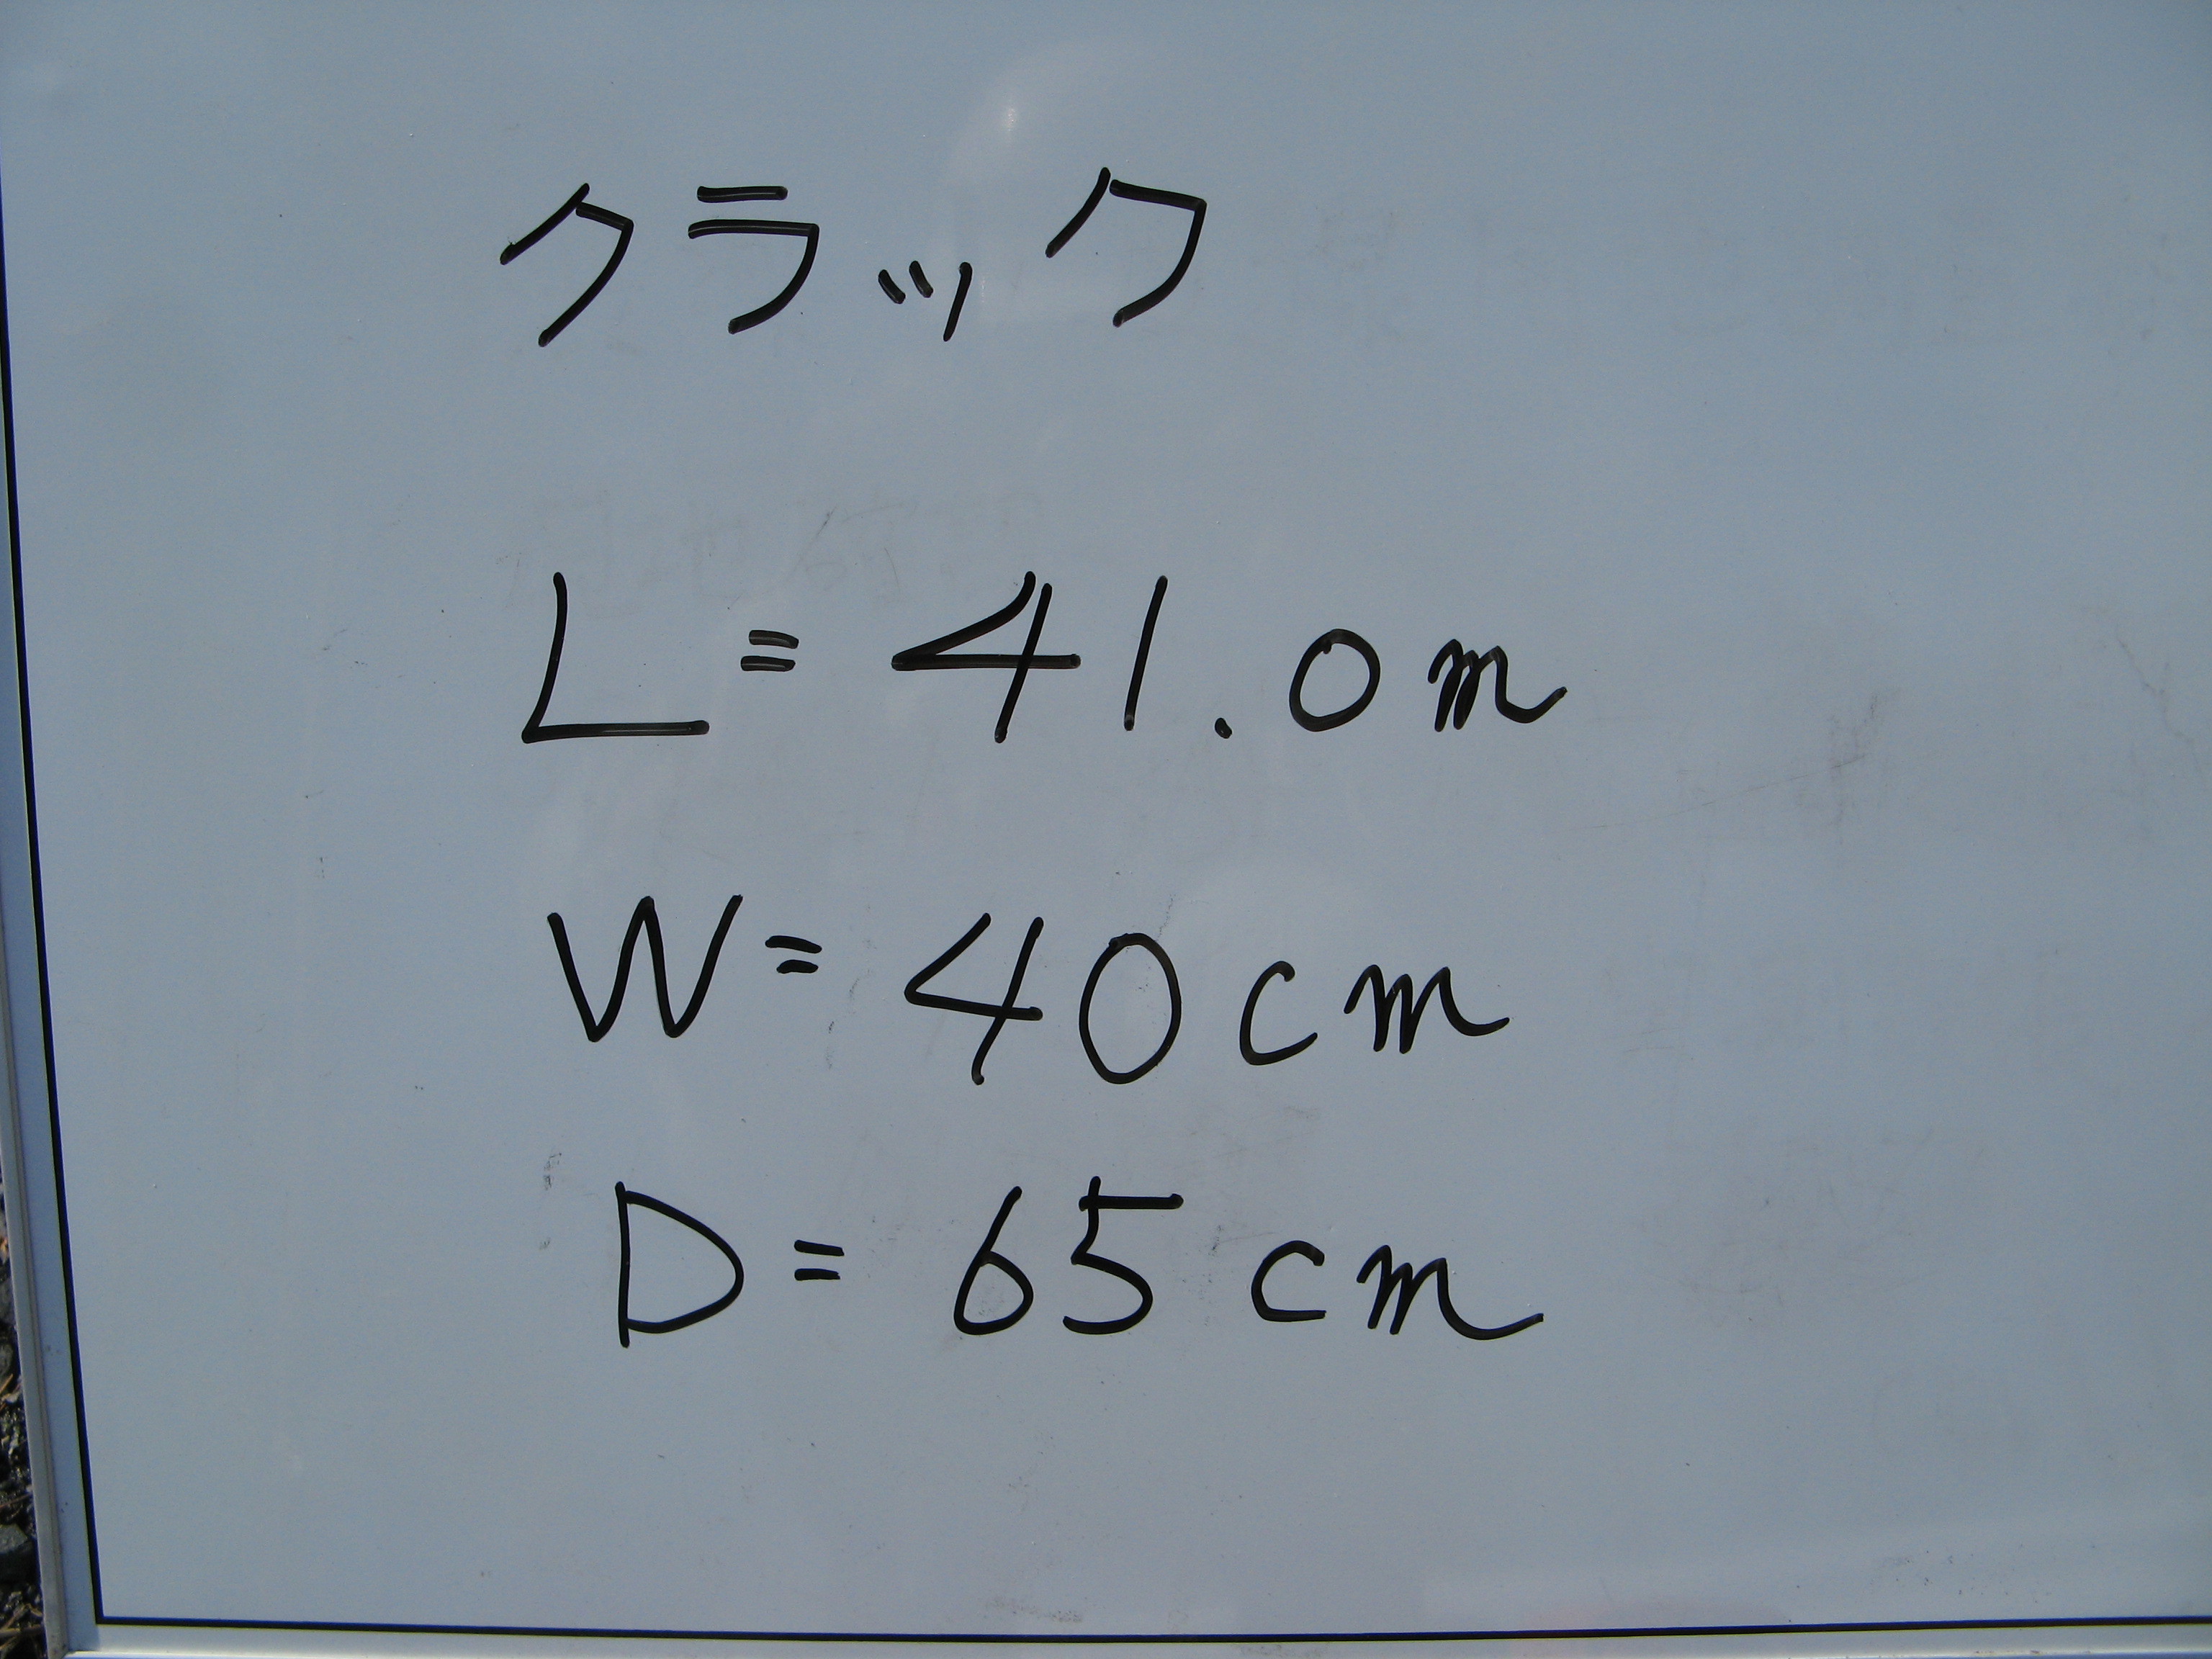 クラック
L=41.0m
W=40cm
D=65cm